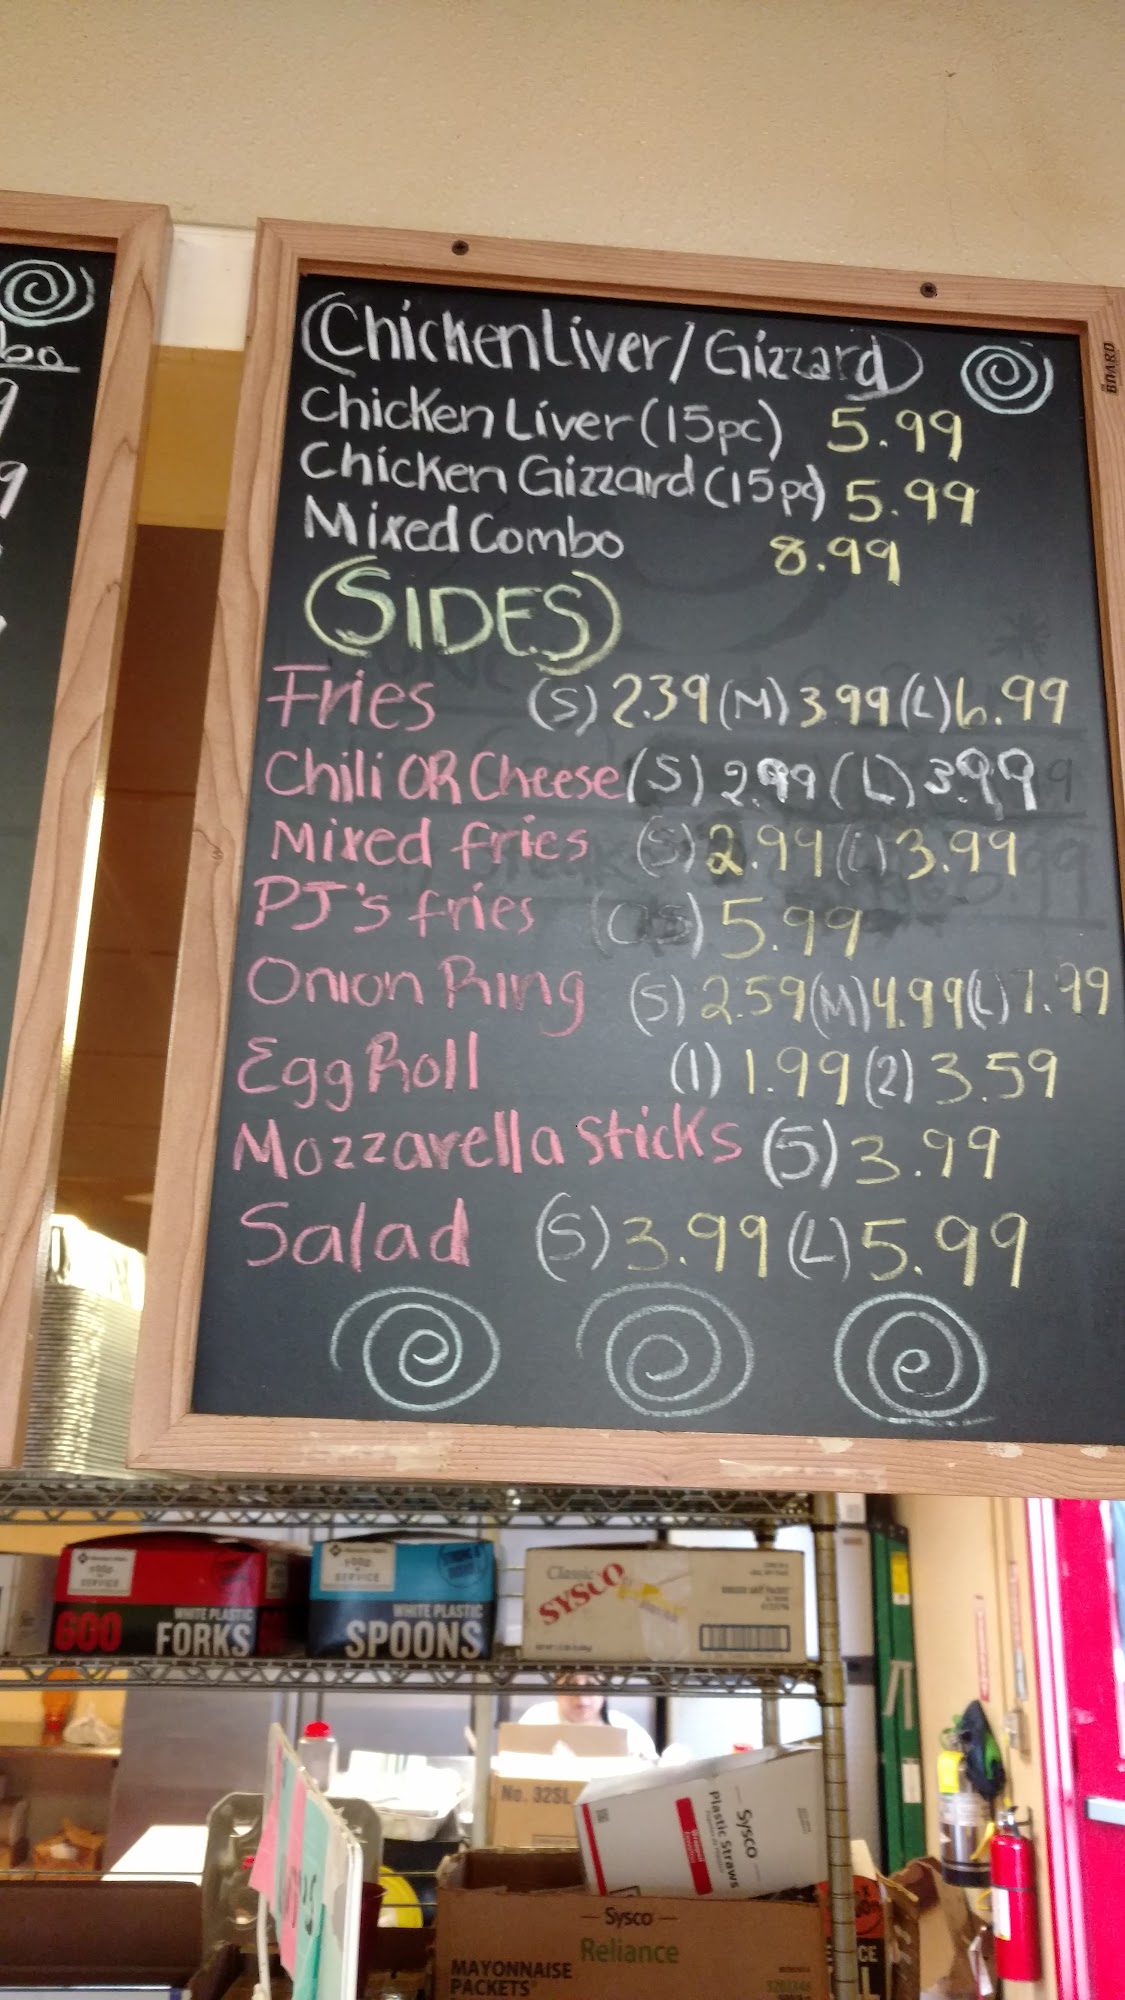 (Chicken Liver/Gizzard)
Chicken Liver (15pc) 5.99
Chicken Gizzard (15pc) 5.99
Mixed Combo 8.99
(SIDES)
Fries (S) 2.39 (M) 3.99 (L) 6.99
Chili OR Cheese (S) 2.99 (L) 3.99
Mixed fries (S) 2.99 (L) 3.99
PJ's fries 5.99
Onion Ring (S) 2.59 (M) 4.99 (L) 7.99
Egg Roll (1) 1.99 (2) 3.59
Mozzarella Sticks (5) 3.99
Salad (S) 3.99 (L) 5.99
BOARD
FOOD
SERVICE
600
WHITE PLASTIC
FORKS
FOOD
SERVICE
WHITE PLASTIC
SPOONS
Classic
SYSCO
No. 32SL
Sysco
Plastic Straws
Sysco
Reliance
MAYONNAISE
PACKETS